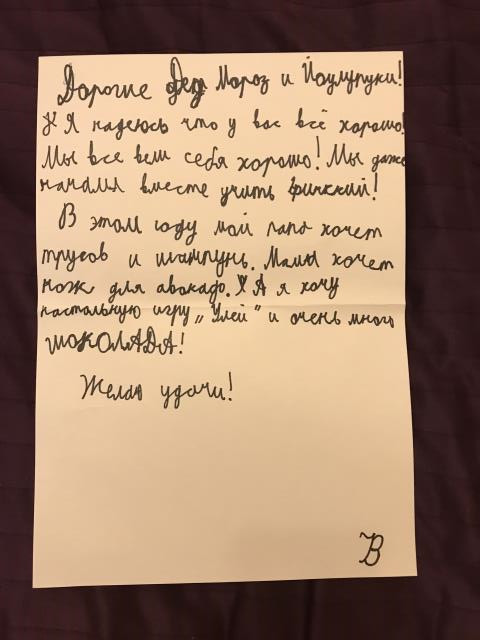 Дорогие Дед Мороз и Йоулупуки!
Я надеюсь что у вас всё хорошо!
Мы все вели себя хорошо! Мы даже
начали вместе учить финский!
В этом году мой папа хочет
трусов и шампунь. Мама хочет
нож для авокадо. А я хочу
настольную игру „Улей" и очень много
ШОКОЛАДА!
Желаю удачи!
В